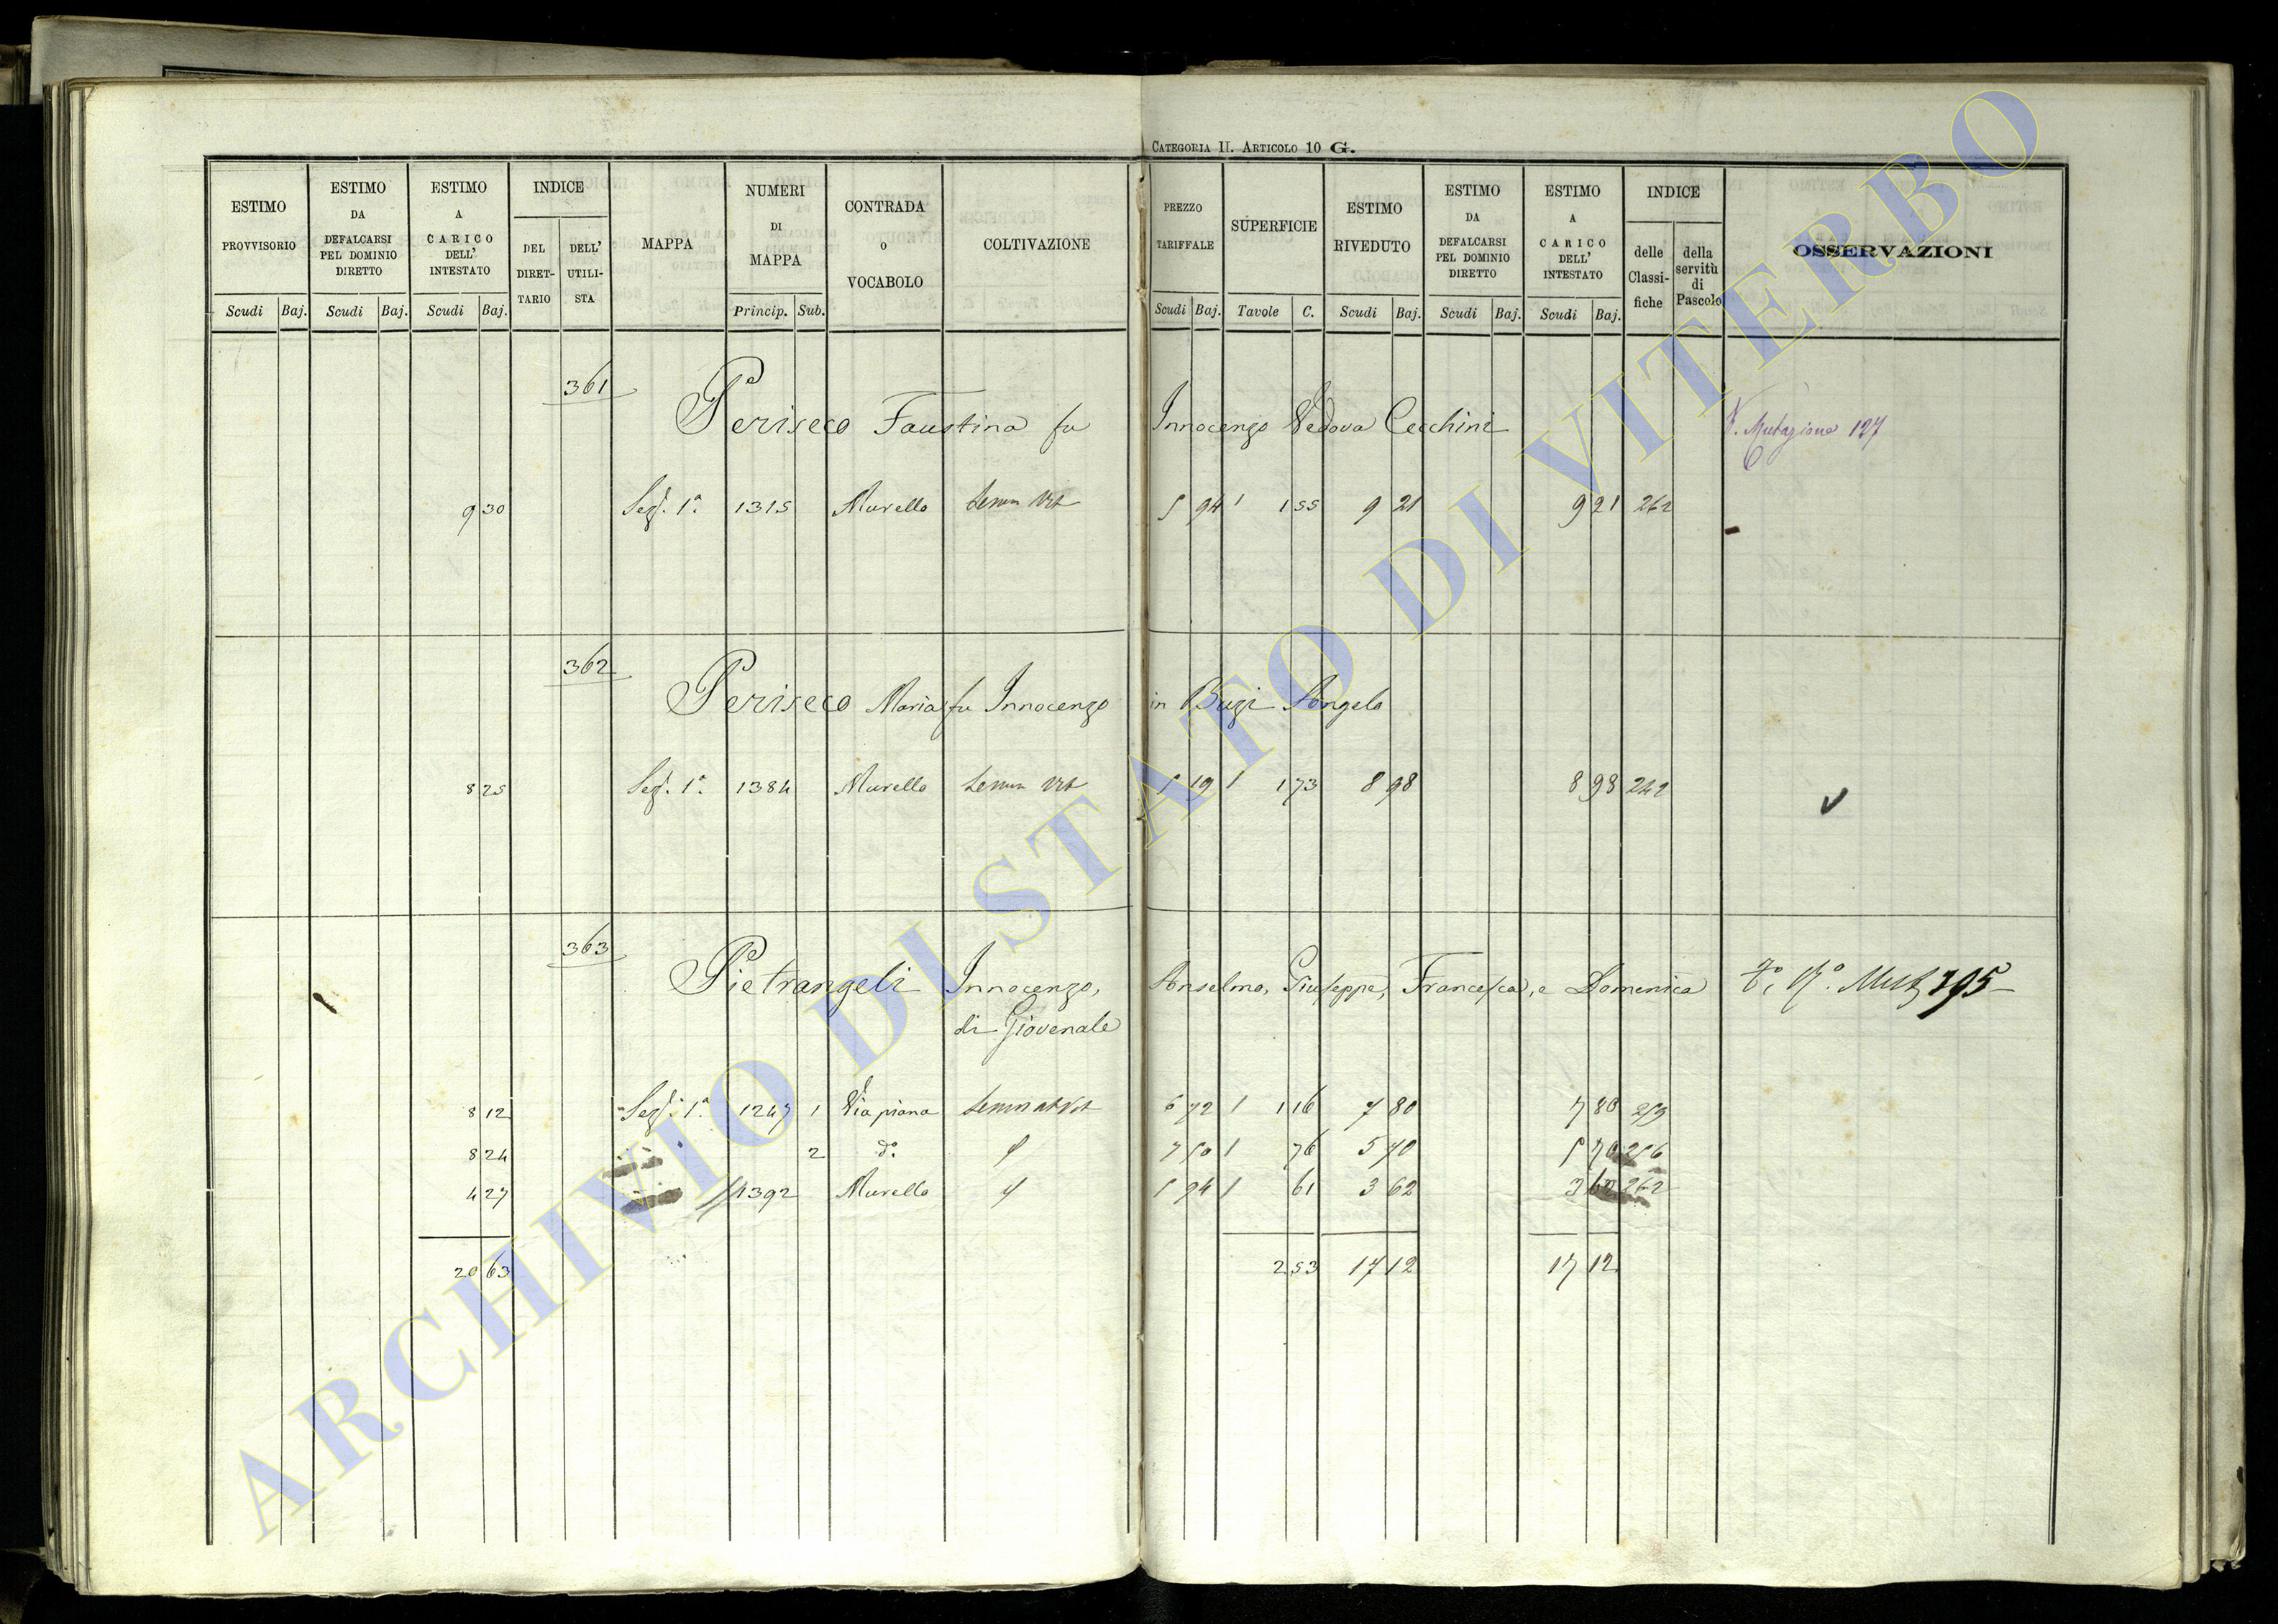 CATEGORIA II. ARTICOLO 10 G.
ESTIMO PROVVISORIO Scudi Baj.
ESTIMO DA DEFALCARSI PEL DOMINIO DIRETTO Scudi Baj.
ESTIMO A CARICO DELL' INTESTATO Scudi Baj.
INDICE DEL DIRET-TARIO DELL' UTILI-STA
MAPPA
NUMERI DI MAPPA Princip. Sub.
CONTRADA O VOCABOLO
COLTIVAZIONE
PREZZO TARIFFALE Scudi Baj.
SUPERFICIE Tavole C.
ESTIMO RIVEDUTO Scudi Baj.
ESTIMO DA DEFALCARSI PEL DOMINIO DIRETTO Scudi Baj.
ESTIMO A CARICO DELL' INTESTATO Scudi Baj.
INDICE delle Classi-fiche della servitù di Pascolo
OSSERVAZIONI
361
Periseco Faustina fu Innocenzo Vedova Cecchini V. Mutazione 127
9 30 Sez. 1ª 1315 Murello Semin Vit 5 94 1 1 55 9 21 9 21 262
362
Periseco Maria fu Innocenzo in Buzi Angelo
8 25 Sez. 1ª 1384 Murello Semin Vit 5 19 1 1 73 8 98 8 98 242
363
Pietrangeli Innocenzo, Anselmo, Giuseppe, Francesca, e Domenica
di Giovenale
8 12 Sez. 1ª 1247 1 Via piana Seminat Vit 6 72 1 1 16 7 80 7 80 259
8 24 2 dº 7 50 1 76 5 70 5 70 256
4 27 1392 Murello 5 94 1 61 3 62 3 62 262
20 63 2 53 17 12 17 12
ARCHIVIO DI STATO DI VITERBO